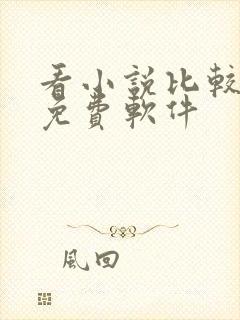 看小說比較
免費軟件
風回